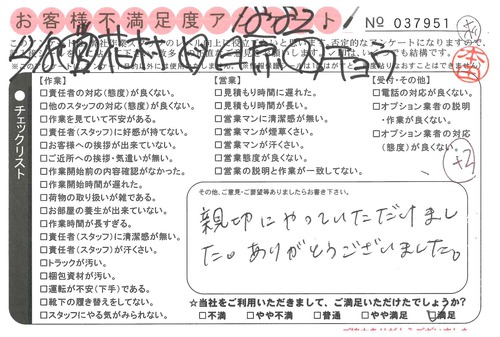 お客様不満足度アンケート
No 037951
【作業】
□責任者の対応(態度)が良くない。
□他のスタッフの対応(態度)が良くない。
□作業を見ていて不安がある。
□責任者(スタッフ)に好感が持てない。
□お客様への挨拶が出来ていない。
□ご近所への挨拶・気遣いが無い。
□作業開始前の内容確認がなかった。
□作業開始時間が遅れた。
□荷物の取り扱いが雑である。
□お部屋の養生が出来ていない。
□作業時間が長すぎる。
□責任者(スタッフ)に清潔感が無い。
□責任者(スタッフ)が汗くさい。
□トラックが汚い。
□梱包資材が汚い。
□運転が不安(下手)である。
□靴下の履き替えをしてない。
□スタッフにやる気がみられない。
【営業】
□見積もり時間に遅れた。
□見積もり時間が長い。
□営業マンに清潔感が無い。
□営業マンが煙草くさい。
□営業マンが汗くさい。
□営業態度が良くない。
□営業の説明と作業が一致してない。
【受付・その他】
□電話の対応が良くない。
□オプション業者の説明
・作業が良くない。
□オプション業者の対応
(態度)が良くない。
+2
チェックリスト
その他、ご意見・ご要望等ありましたらお書き下さい。
親切にやっていただけまし
た。ありがとうございました。
☆当社をご利用いただきまして、ご満足いただけたでしょうか?
□不満 □やや不満 □普通 □やや満足 □満足